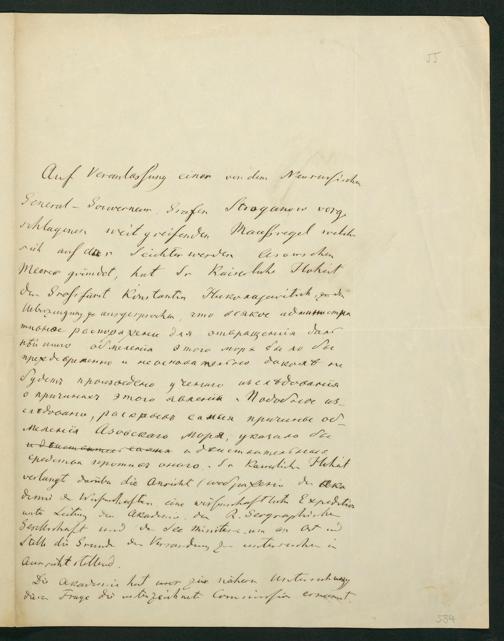 55
Auf Veranlassung einer von dem Neurussischen
General-Gouverneur, Grafen Stroganow vorge
schlagenen weit greifenden Maaßregel welche
sich auf das Seichterwerden Asowschen
Meeres gründet, hat Sr Kaiserliche Hoheit
der Großfürst Konstantin Nikolajewitsch, die
Ueberzeugung ausgesprochen, что всякое администра
тивное распоряжение для отвращения даль
нѣйшаго обмеленія этого моря было бы
преждевременно и неосновательно доколѣ не
будетъ произведено ученаго изслѣдованія
о причинахъ этого явленія. Подобное из
слѣдованіе, раскрывъ самыя причины об
меленія Азовскаго моря, указало бы
и дѣйствительныя
средства противъ онаго. Sr Kaiserliche Hoheit
verlangt darüber die Ansicht der Aka
demie der Wissenschaften eine wissenschaftliche Expedition
unter Leitung der Akademie, der R. Geographischen
Gesellschaft und des See Ministeriums an Ort und
Stelle die Gründe der Versandung zu untersuchen in
Aussicht stellend.
Die Akademie hat zur nähern Untersuchung
dieser Frage die unterzeichnete Commission ernannt.
534